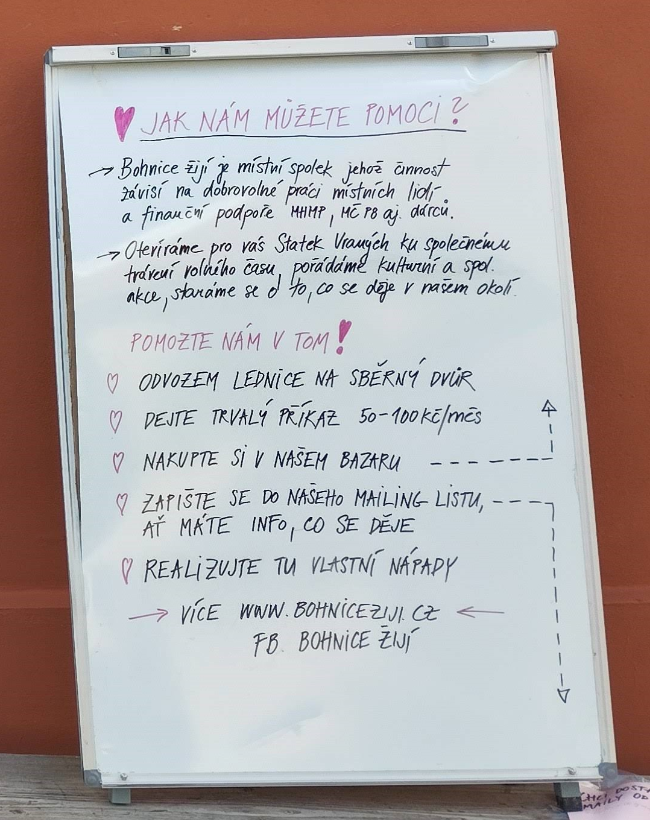 JAK NÁM MŮŽETE POMOCI?
→ Bohnice žijí je místní spolek jehož činnost
závisí na dobrovolné práci místních lidí
a finanční podpoře MHMP, MČ P8 aj. dárců.
→ Otevíráme pro vás Statek Vraných ku společnému
trávení volného času, pořádáme kulturní a spol.
akce, staráme se o to, co se děje v našem okolí.
POMOZTE NÁM V TOM!
ODVOZEM LEDNICE NA SBĚRNÝ DVŮR
DEJTE TRVALÝ PŘÍKAZ 50-100 kč/měs
NAKUPTE SI V NAŠEM BAZARU
ZAPIŠTE SE DO NAŠEHO MAILING LISTU,
AŤ MÁTE INFO, CO SE DĚJE
REALIZUJTE TU VLASTNÍ NÁPADY
→ VÍCE WWW.BOHNICEZIJI.CZ ←
FB. BOHNICE ŽIJÍ
CHCI DOST
MAILY OD